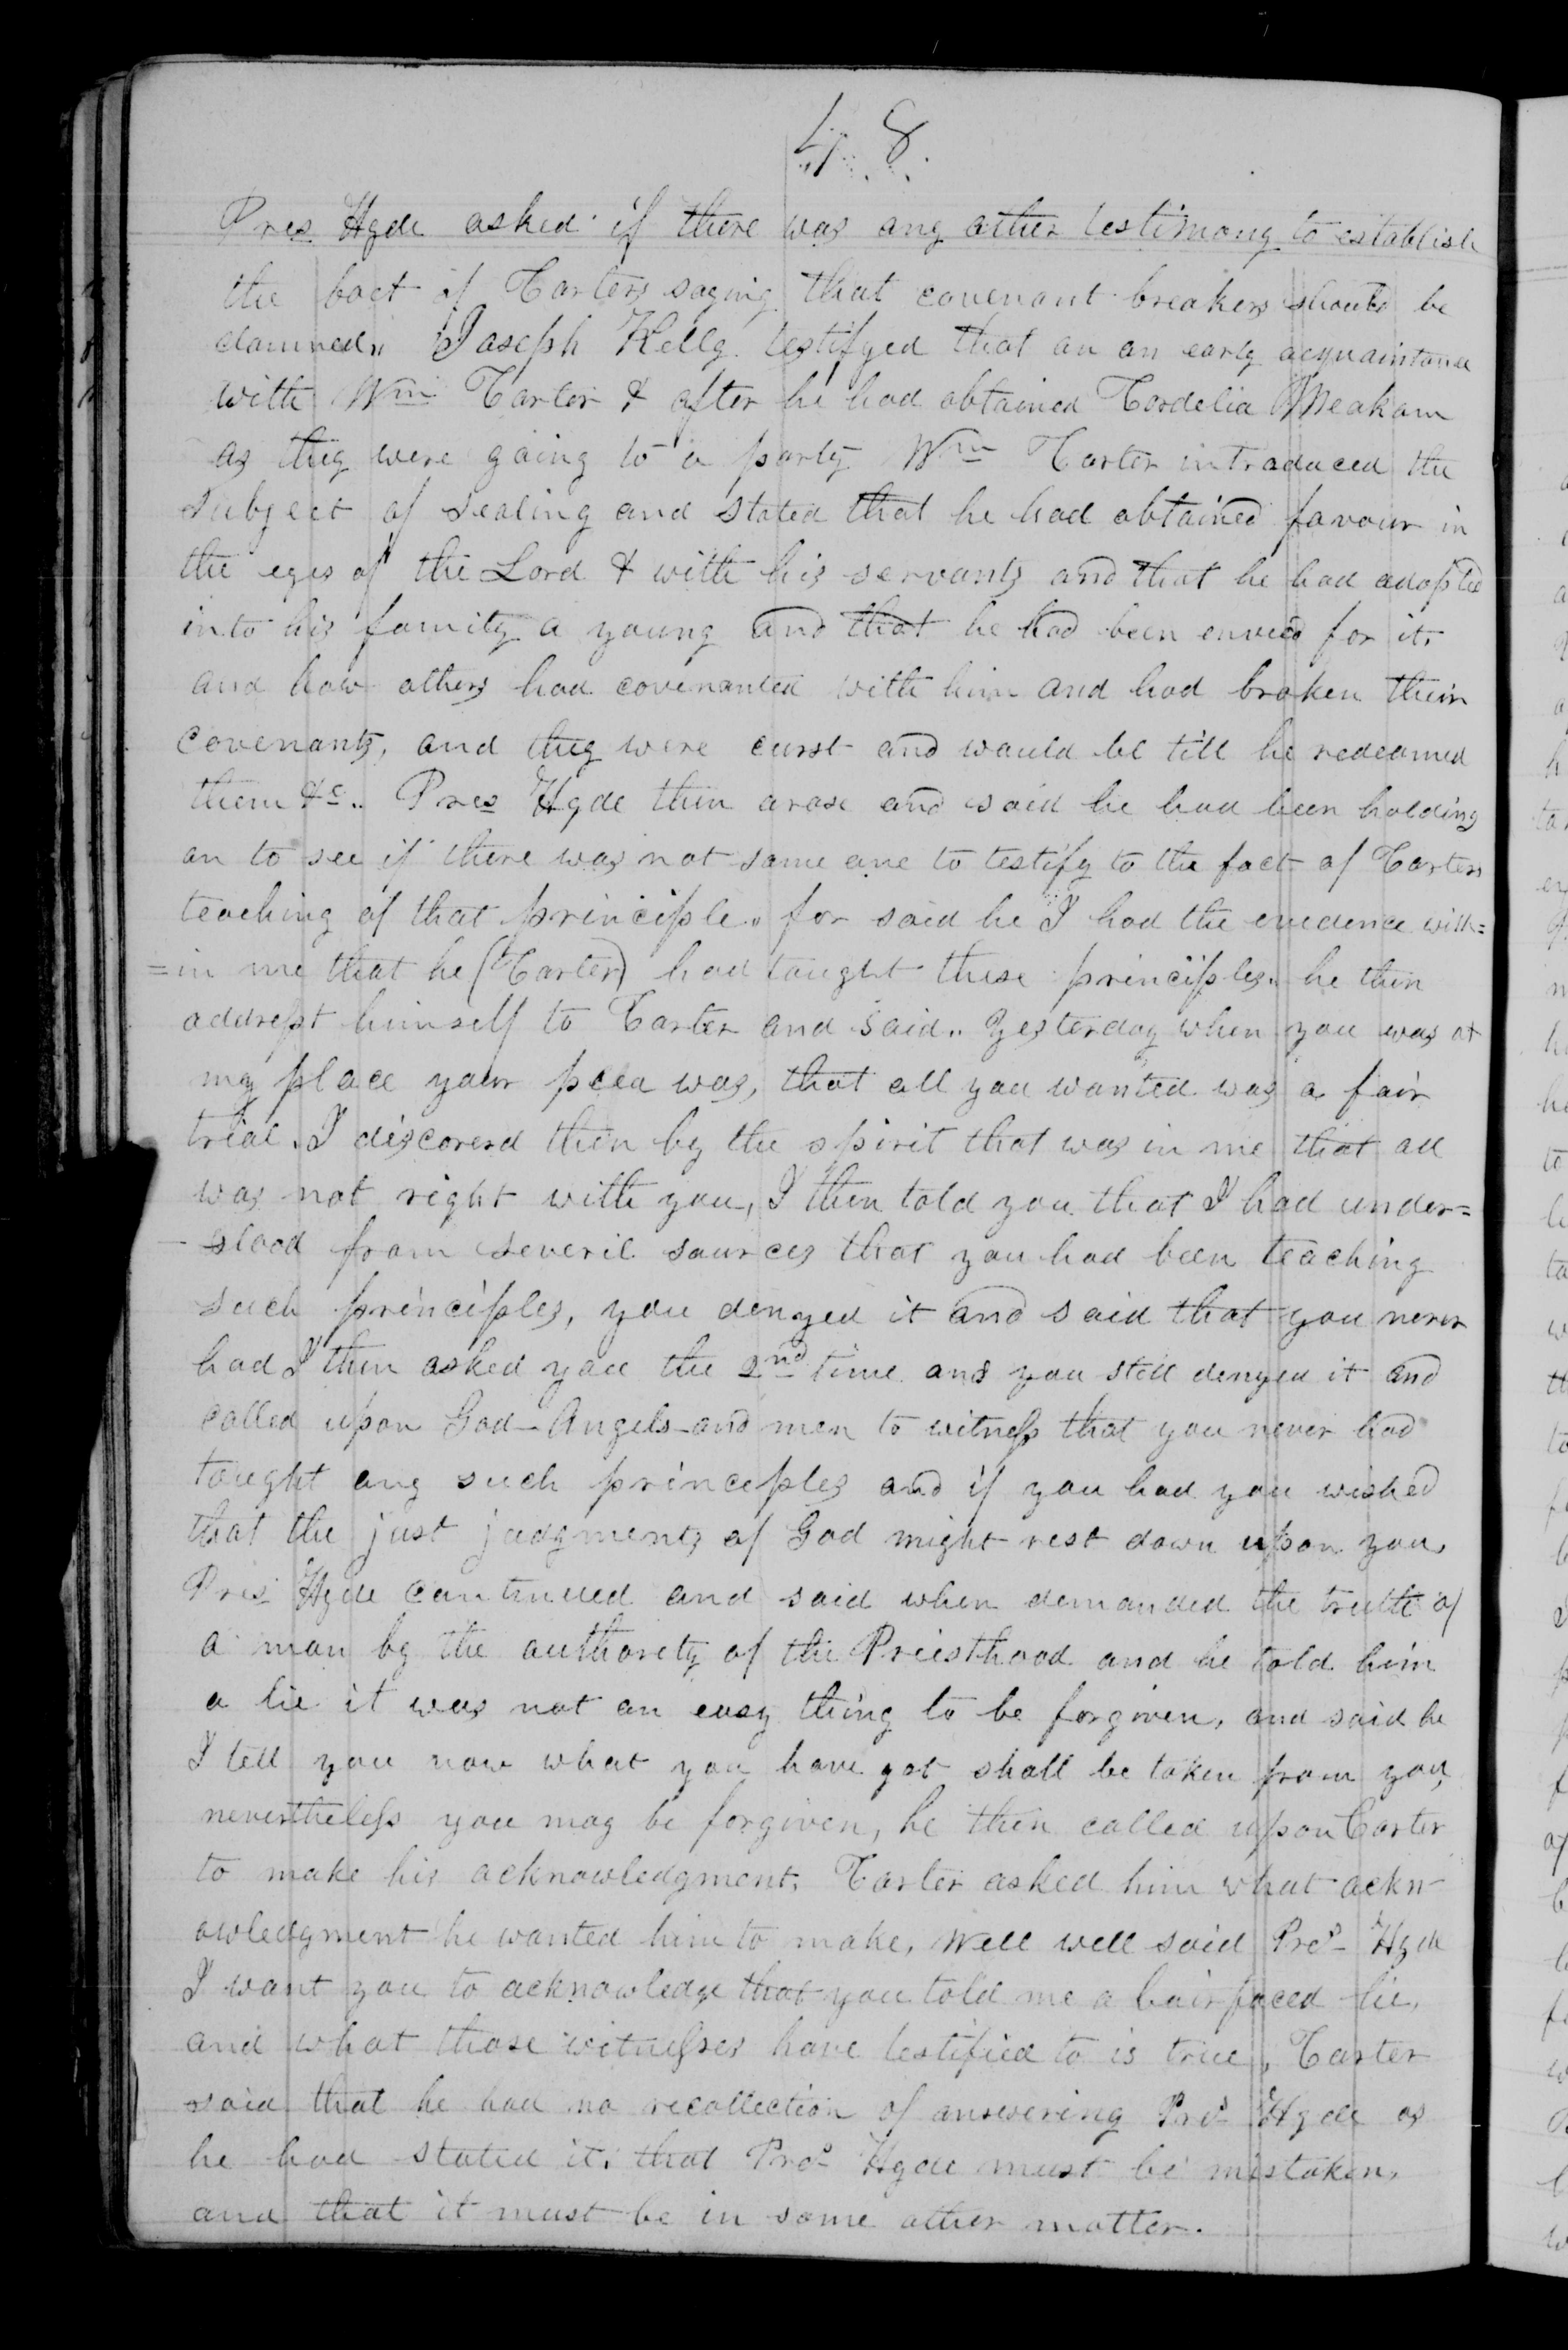 48.
Pres Hyde asked if there was any other testimony to establish
the fact of Carters saying that covenant breakers should be
damned, Joseph Kelly testifyed that on an early acquaintance
with Wm Carter & after he had obtained Cordelia Meakam
as they were going to a party Wm Carter introduced the
subject of sealing and stated that he had obtained favour in
the eyes of the Lord & with his servants and that he had adopted
into his family a young and that he had been envied for it.
and how others had covenanted with him and had broken their
covenants, and they were curst and would be till he redeamed
them &c.. Pres Hyde then arose and said he had been holding
on to see if there was not some one to testify to the fact of Carters
teaching of that principle. for said he I had the evidence with=
=in me that he (Carter) had taught these principles. he then
addresst himself to Carter and said.. Yesterday when you was at
my place your plea was, that all you wanted was a fair
trial. I discoverd then by the spirit that was in me that all
was not right with you, I then told you that I had under=
-stood from severil sources that you had been teaching
such principles, you denyed it and said that you never
had I then asked you the 2nd time and you still denyed it and
called upon God - Angels and men to witness that you never had
tought any such principles and if you had you wished
that the just judgments of God might rest down upon you,
Pres Hyde continued and said when demanded the truth of
a man by the authority of the Priesthood and he told him
a lie it was not an easy thing to be forgiven, and said he
I tell you now what you have got shall be taken from you,
nevertheless you may be forgiven, he then called upon Carter
to make his acknowledgment, Carter asked him what ackn-
owledgment he wanted him to make, Well well said Pres Hyde
I want you to acknowledge that you told me a bairfaced lie,
and what those witnesses have testified to is true, Carter
said that he had no recollection of answering Pres Hyde as
he had stated it, that Pres Hyde must be mistaken,
and that it must be in some other matter.